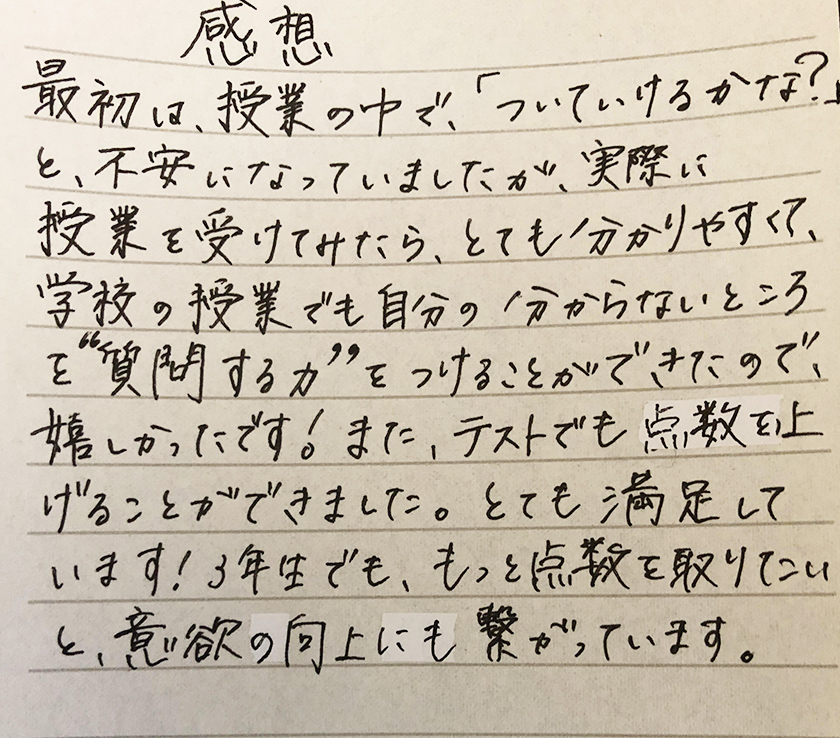 感想
最初は、授業の中で、「ついていけるかな?」
と、不安になっていましたが、実際に
授業を受けてみたら、とても分かりやすくて、
学校の授業でも自分の分からないところ
を“質問する力”をつけることができたので、
嬉しかったです!また、テストでも点数を上
げることができました。とても満足して
います!3年生でも、もっと点数を取りたい
と、意欲の向上にも繋がっています。